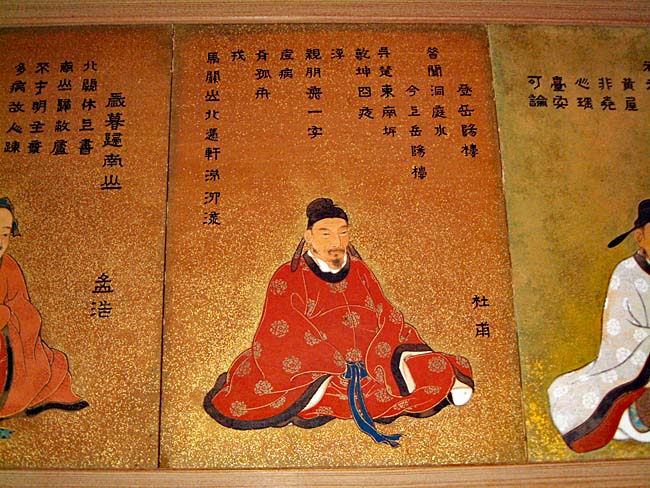 黃屋
非堯
心瑤
臺安
可論
登岳陽樓
昔聞洞庭水
今上岳陽樓
吳楚東南坼
乾坤日夜
浮
親朋無一字
老病
有孤舟
戎
馬關山北憑軒涕泗流
杜甫
歲暮歸南山
北闕休上書
南山歸敝廬
不才明主棄
多病故人疎
孟浩